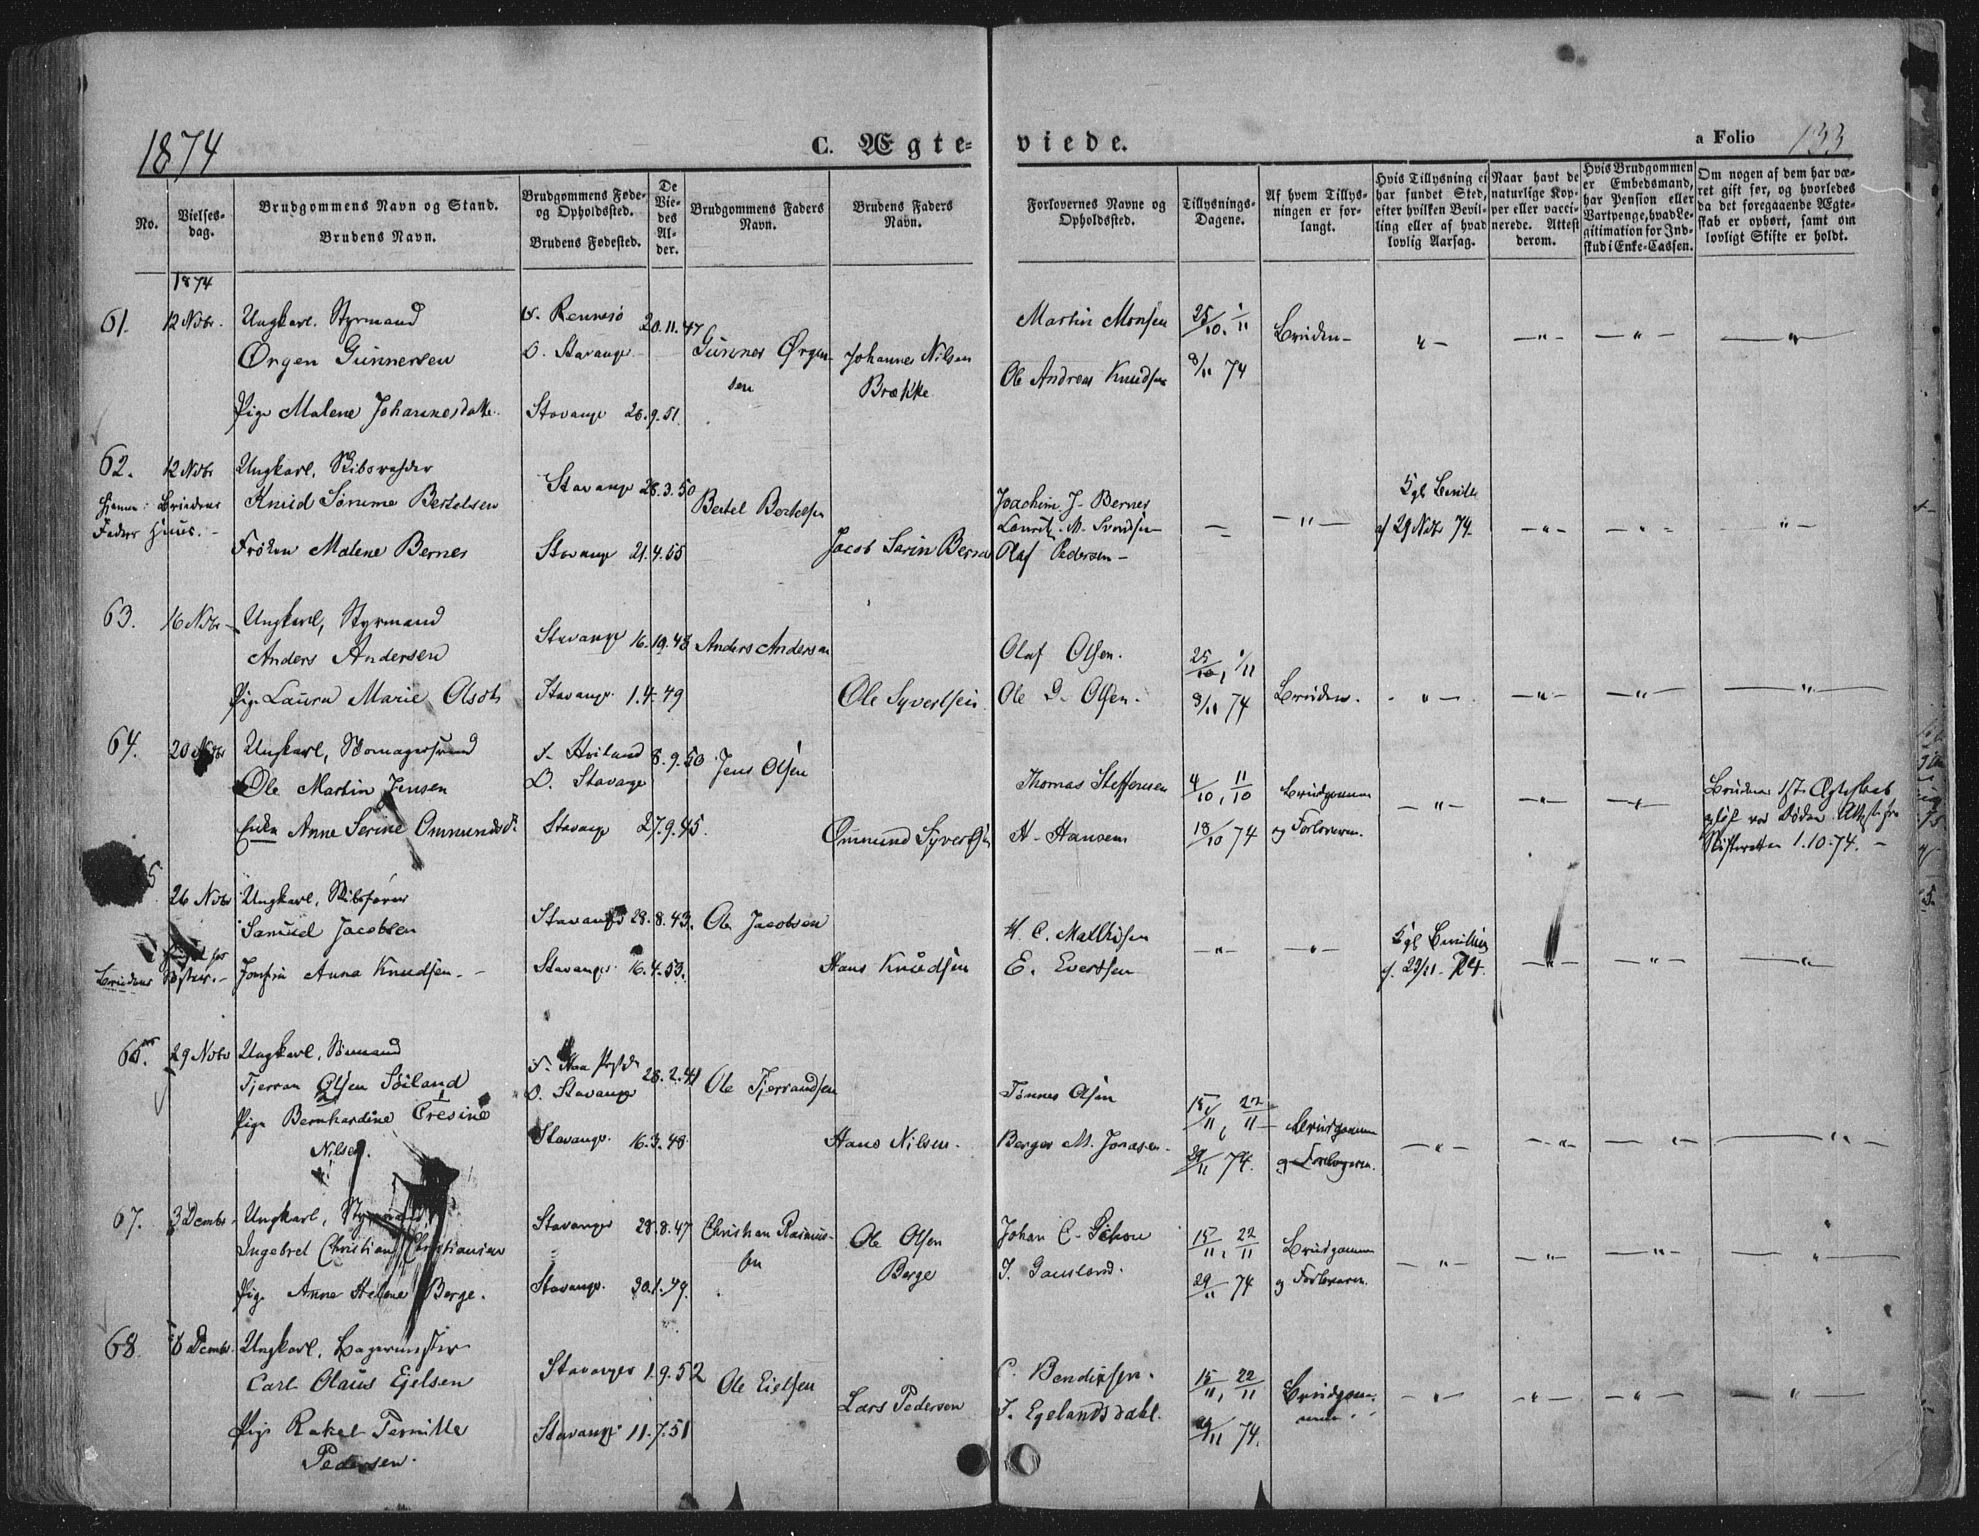 1874
C. Ægte-
viede.
a Folio 133
No.
Vielses-
dag.
Brudgommens Navn og Stand.
Brudens Navn.
Brudgommens Føde-
og Opholdssted.
Brudens Fødested.
De
Vie-
des
Al-
der.
Brudgommens Faders
Navn.
Brudens Faders
Navn.
Forlovernes Navne og
Opholdssted.
Tillysnings-
Dagene.
Af hvem Tillys-
ningen er for-
langt.
Hvis Tillysning ei
har fundet Sted,
efter hvilken Bevil-
ling eller af hvad
lovlig Aarsag.
Naar havt de
naturlige Kop-
per eller vacci-
nerede. Attest
derom.
Hvis Brudgommen
er Embedsmand,
har Pension eller
Vartpenge, hvad Le-
gitimation for Ind-
skud i Enke-Cassen.
Om nogen af dem har væ-
ret gift før, og hvorledes
da det foregaaende Ægte-
skab er ophørt, samt om
lovligt Skifte er holdt.
1874
61. 12 Nvbr. Ungkarl. Styrmand
Ørgen Gunnersen
Pige Malene Johannesdatter
F. Rennesø 20.11.47
O. Stavanger
Stavanger 26.9.51.
Gunner Ørgen-
sen
Johannes Nilsen
Brække
Martin Monsen
Ole Andreas Knudsen
25/10, 1/11
8/11 74
Bruden -
62. 12 Nvbr Ungkarl, Skibsreder
Knud Sømme Bertelsen
Hjemme i Brudens
Faders Huus. -
Frøken Malene Berner
Stavanger 28.3.50
Stavanger 21.4.55
Bertel Bertelsen
Jacob Sarin Berner
Joachim J. Berner
Lauritz M. Svendsen
Olaf Pedersen -
Kgl Bevill.
af 29 Nvbr 74.
63. 16 Nvbr - Ungkarl, Styrmand
Anders Andersen
Pige Laura Marie Olsdtr
Stavanger 16.10.48
Stavanger 1.4.49
Anders Andersen
Ole Syvertsen
Olaf Olsen.
Ole G. Olsen.
25/10, 1/11
8/11 74
Bruden.
64. 20 Nvbr Ungkarl, Skomagersvend
Ole Martin Jensen
Enke Anne Serine Ommundsdtr
F. Hviland 8.9.50
O. Stavanger
Stavanger 27.9.45.
Jens Olsen
Ommund Syvertsen
Thomas Steffensen
H. Hansen
4/10, 11/10
18/10 74
Brudgommen
og Forloveren.
Brudens 1ste Ægteskab
opløst ved Døden. Attest fra
Skifteretten 1.10.74. -
5
26 Nvbr Ungkarl, Skibsfører
Samuel Jacobsen
Brudens
Jomfru Anna Knudsen. -
Stavanger 28.8.43.
Stavanger 16.4.53.
Ole Jacobsen
Hans Knudsen
H. C. Malthisen
E. Evertsen
Kgl Bevilling
af 23/11 - 74.
29 Nvbr Ungkarl, Sømand
Tjerran Olsen Søiland
Pige Bernhardine Tresine
Nilsen.
F. Haa Prstd
O. Stavanger 28.2.41
Stavanger 16.3.48
Ole Tjerrandsen
Hans Nilsen.
Tønnes Olsen
Berger M. Jonasen.
15/11, 22/11
29/11 74.
Brudgommen
og Forloveren.
67. 3 Dcmbr. Ungkarl, Styrmand
Ingebret Christian Christiansen
Pige Anne Helene Berge.
Stavanger 28.8.47
Stavanger 30.1.49.
Christian Rasmus-
sen
Ole Olsen
Berge
Johan C. Schou
T. Gausland.
15/11, 22/11
29/11 74
Brudgommen
og Forloveren.
68. 6 Dcmbr. Ungkarl. Bagermester
Carl Olaus Ejelsen
Pige Rakel Pernille
Pedersen.
Stavanger 1.9.52
Stavanger 11.7.51
Ole Eielsen
Lars Pedersen
C. Bendixsen.
T. Egelandsdahl.
15/11, 22/11
29/11 74.
Brudgom-
men.